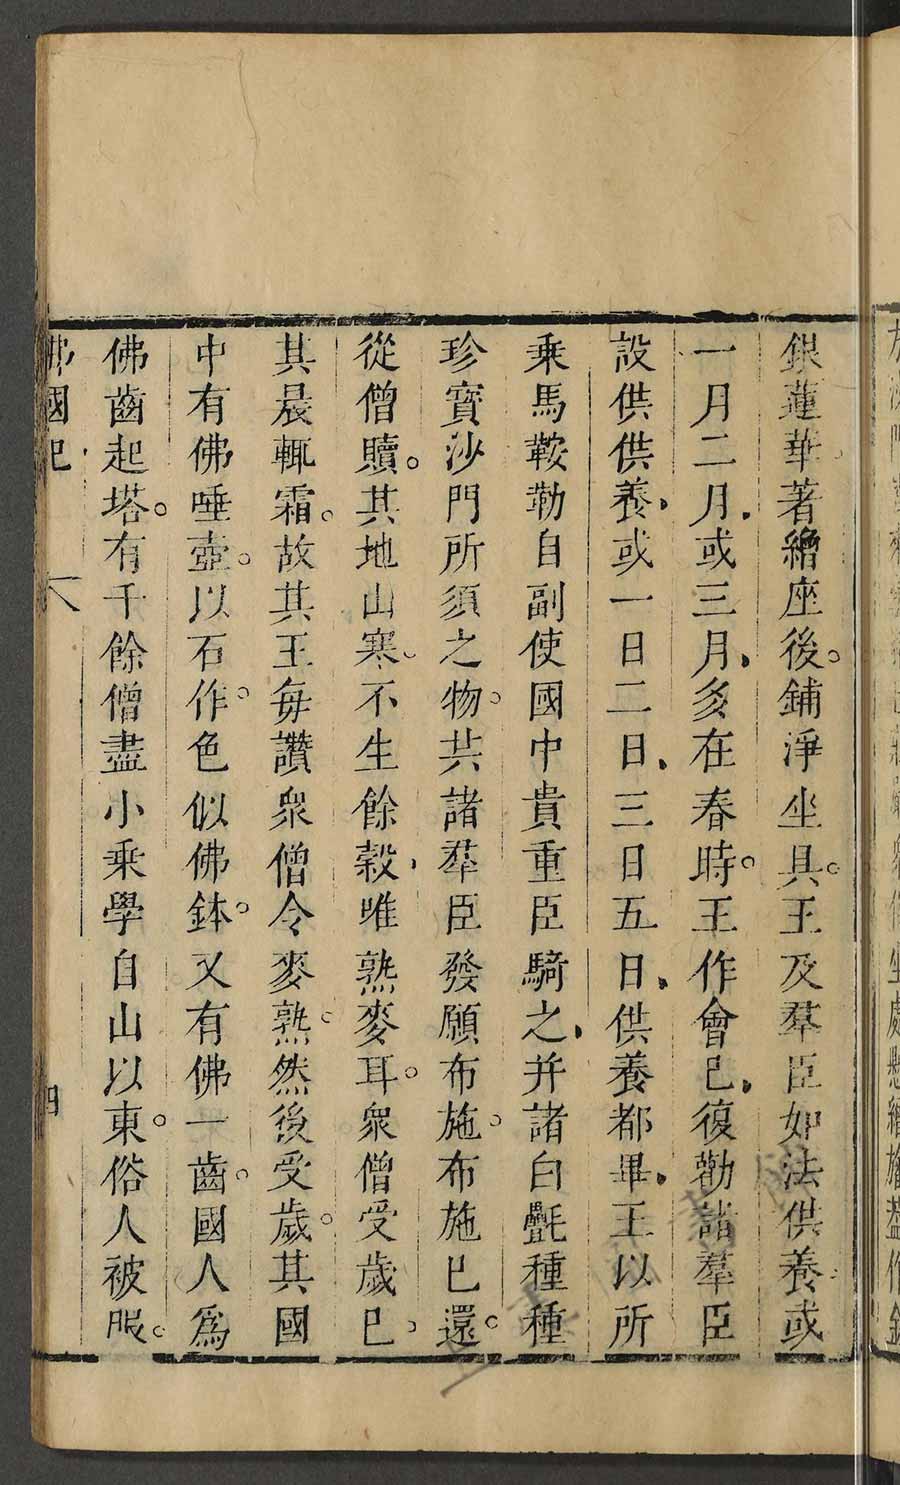 銀蓮華著繒座後。鋪淨坐具。王及羣臣如法供養或
一月二月、或三月、多在春時。王作會已、復勸諸羣臣
設供供養、或一日二日、三日五日、供養都畢、王以所
乘馬鞍勒自副使國中貴重臣騎之、并諸白㲲種種
珍寶沙門所須之物。共諸羣臣發願布施。布施已還。
從僧贖。其地山寒、不生餘穀、唯熟麥耳。衆僧受歲已、
其晨輒霜。故其王每讚衆僧令麥熟。然後受歲。其國
中有佛唾壺。以石作。色似佛鉢。又有佛一齒。國人爲
佛齒起塔。有千餘僧盡小乘學自山以東。俗人被服。
佛國記
四